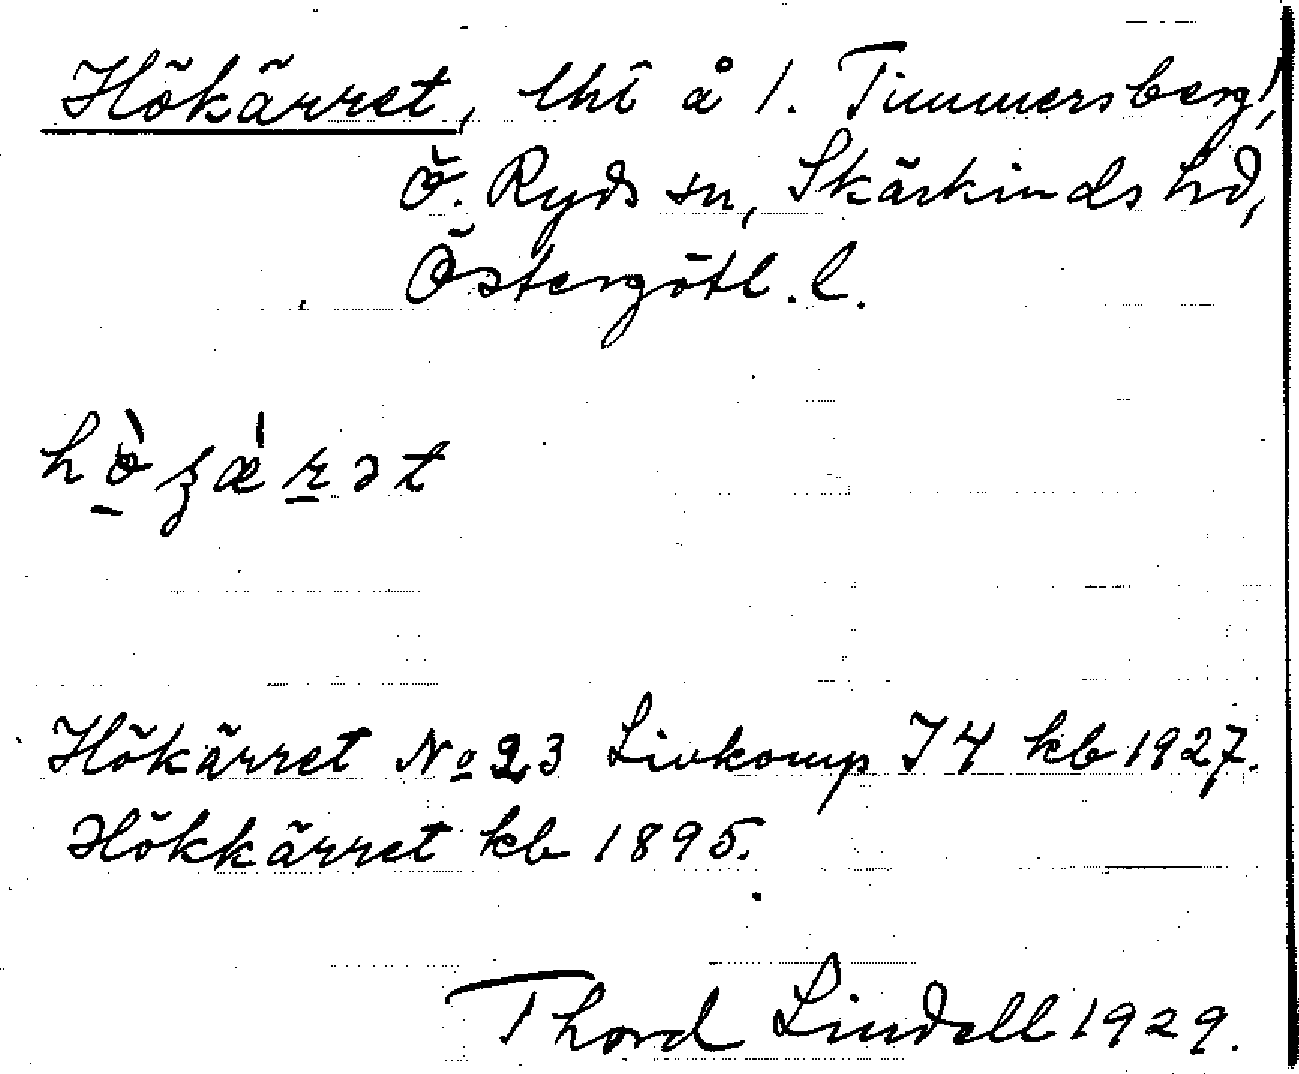 Hökärret, lht å 1. Timmersberg,
Ö. Ryds sn, Skärkinds hd,
Östergötl. l.
hö̀ʒǽrət
Hökärret No 23 Livkomp I 4 kb 1927.
Hökkärret kb 1895.
Thord Lindell 1929.